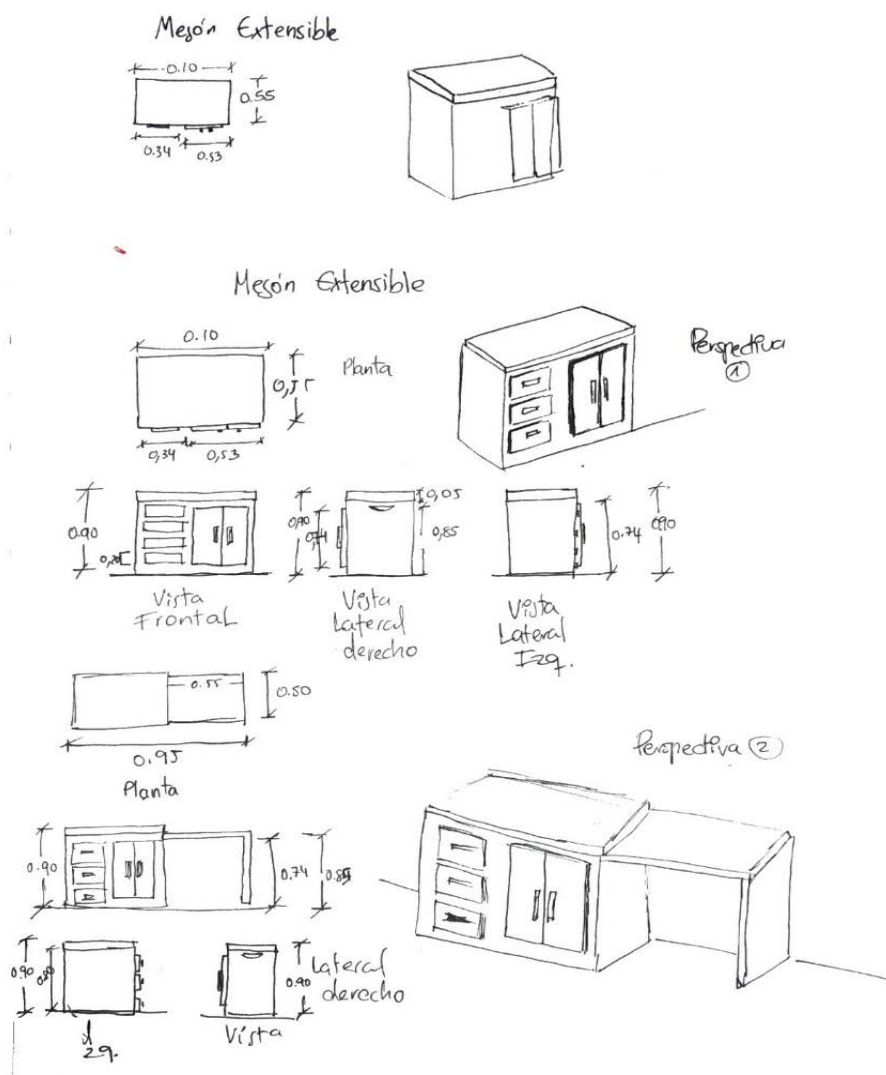 Mesón Extensible
0.10
0.55
0.34
0.53
Mesón Extensible
0.10
Planta
0,34
0,53
Perspectiva
1
0.90
0,90
0,74
0,05
0,85
0.74
0.90
Vista
Frontal
Vista
Lateral
derecho
Vista
Lateral
Izq.
0.55
0.50
0.95
Planta
Perspectiva 2
0.90
0.74
0.90
0.90
Lateral
derecho
Vista